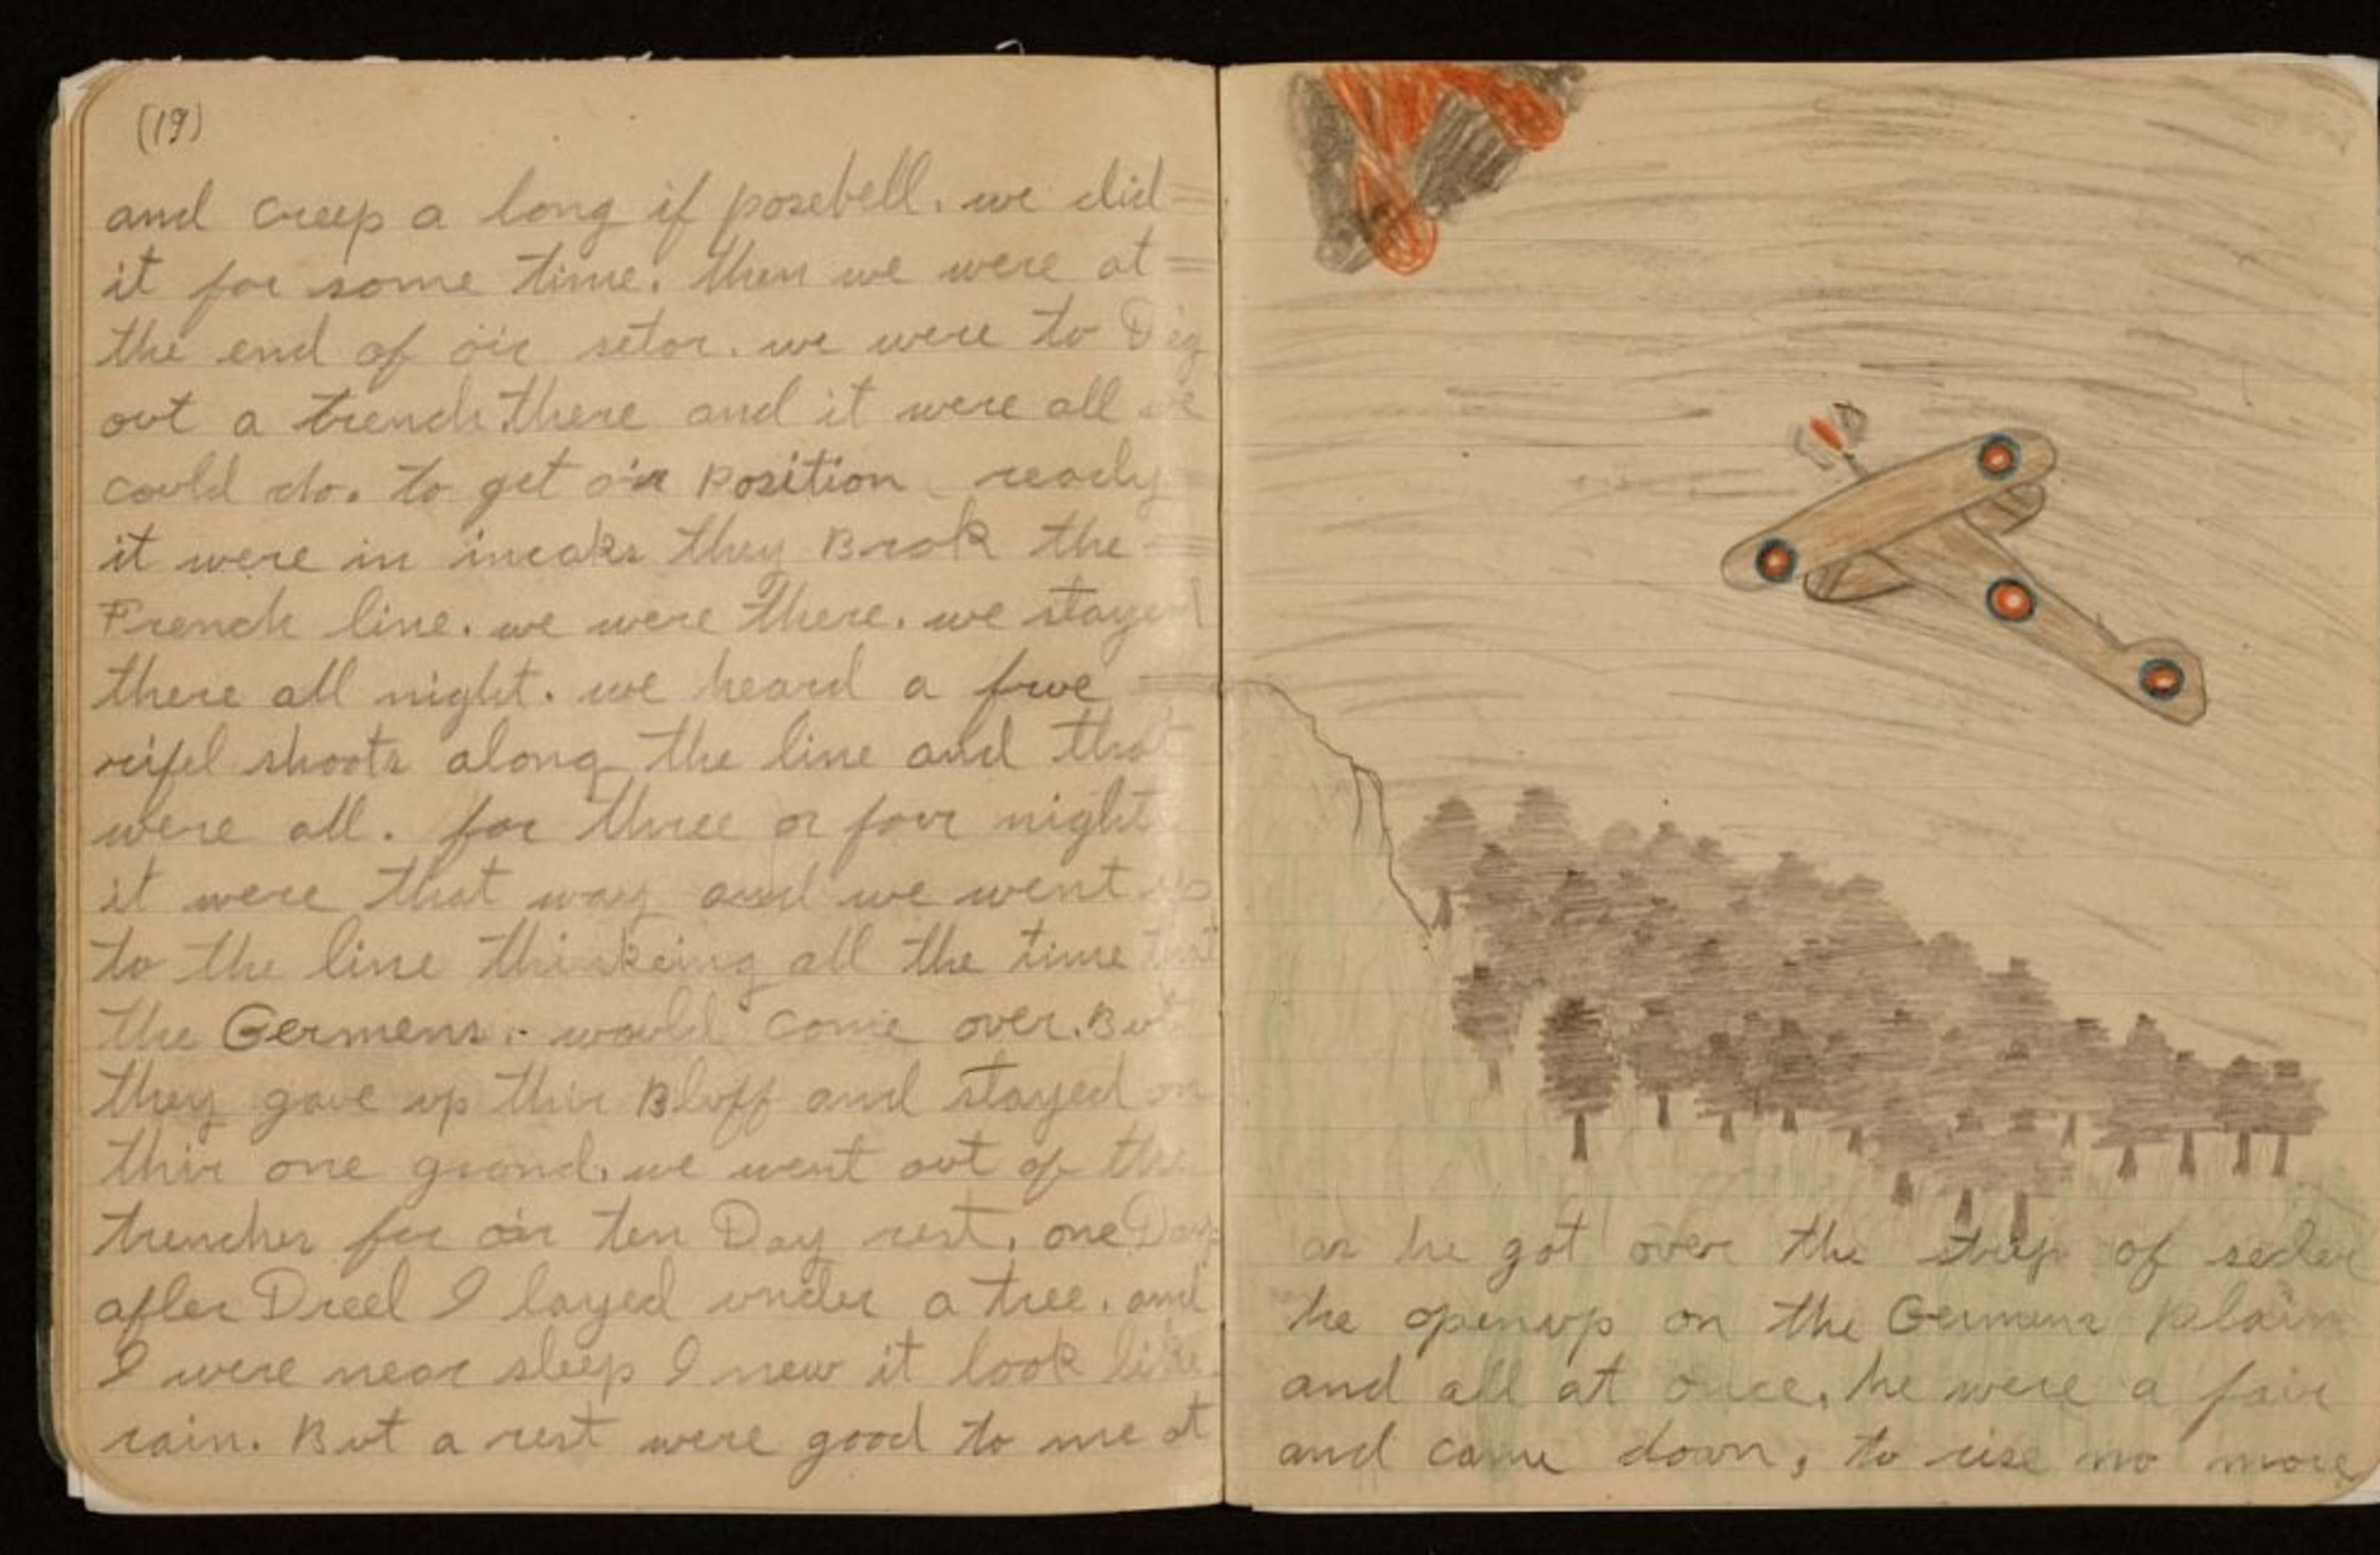 (19)
and creep a long if posebell. we did
it for some time. then we were at
the end of oir setor. we were to Dig
out a trench there and it were all we
could do. to get oir Position ready
it were in incaks they Brok the
French line. we were there. we stayed
there all night. we heard a fwe
rifel shoots along the line and that
were all. for three or four night
it were that way and we went up
to the line thinkeing all the time that
the Germens. would come over. But
they gave up thir Bluff and stayed on
thir one grond. we went out of the
trenches for oir ten Day rest. one Day
after Dreel I layed under a tree. and
I were near sleep I new it look like
rain. But a rest were good to me at
as he got over the strip of
he openup on the Germens plain
and all at once. he were a fair
and came down, to rise no more